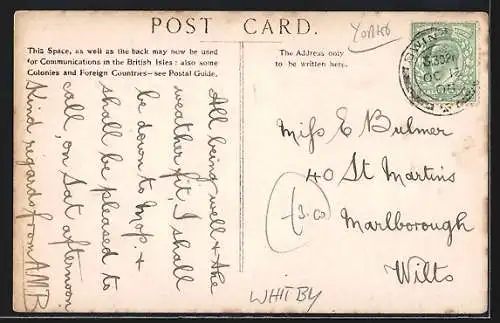 POST CARD.
Yorks
This Space, as well as the back may now be used
for Communications in the British Isles: also some
Colonies and Foreign Countries—see Postal Guide.
The Address only
to be written here.
All being well & the
weather fit, I shall
be down to Mop. &
shall be pleased to
call, on Sat afternoon
Kind regards from A.M.B.
Miss E Bulmer
40 St Martins
Marlborough
Wilts
WHITBY
OC 12